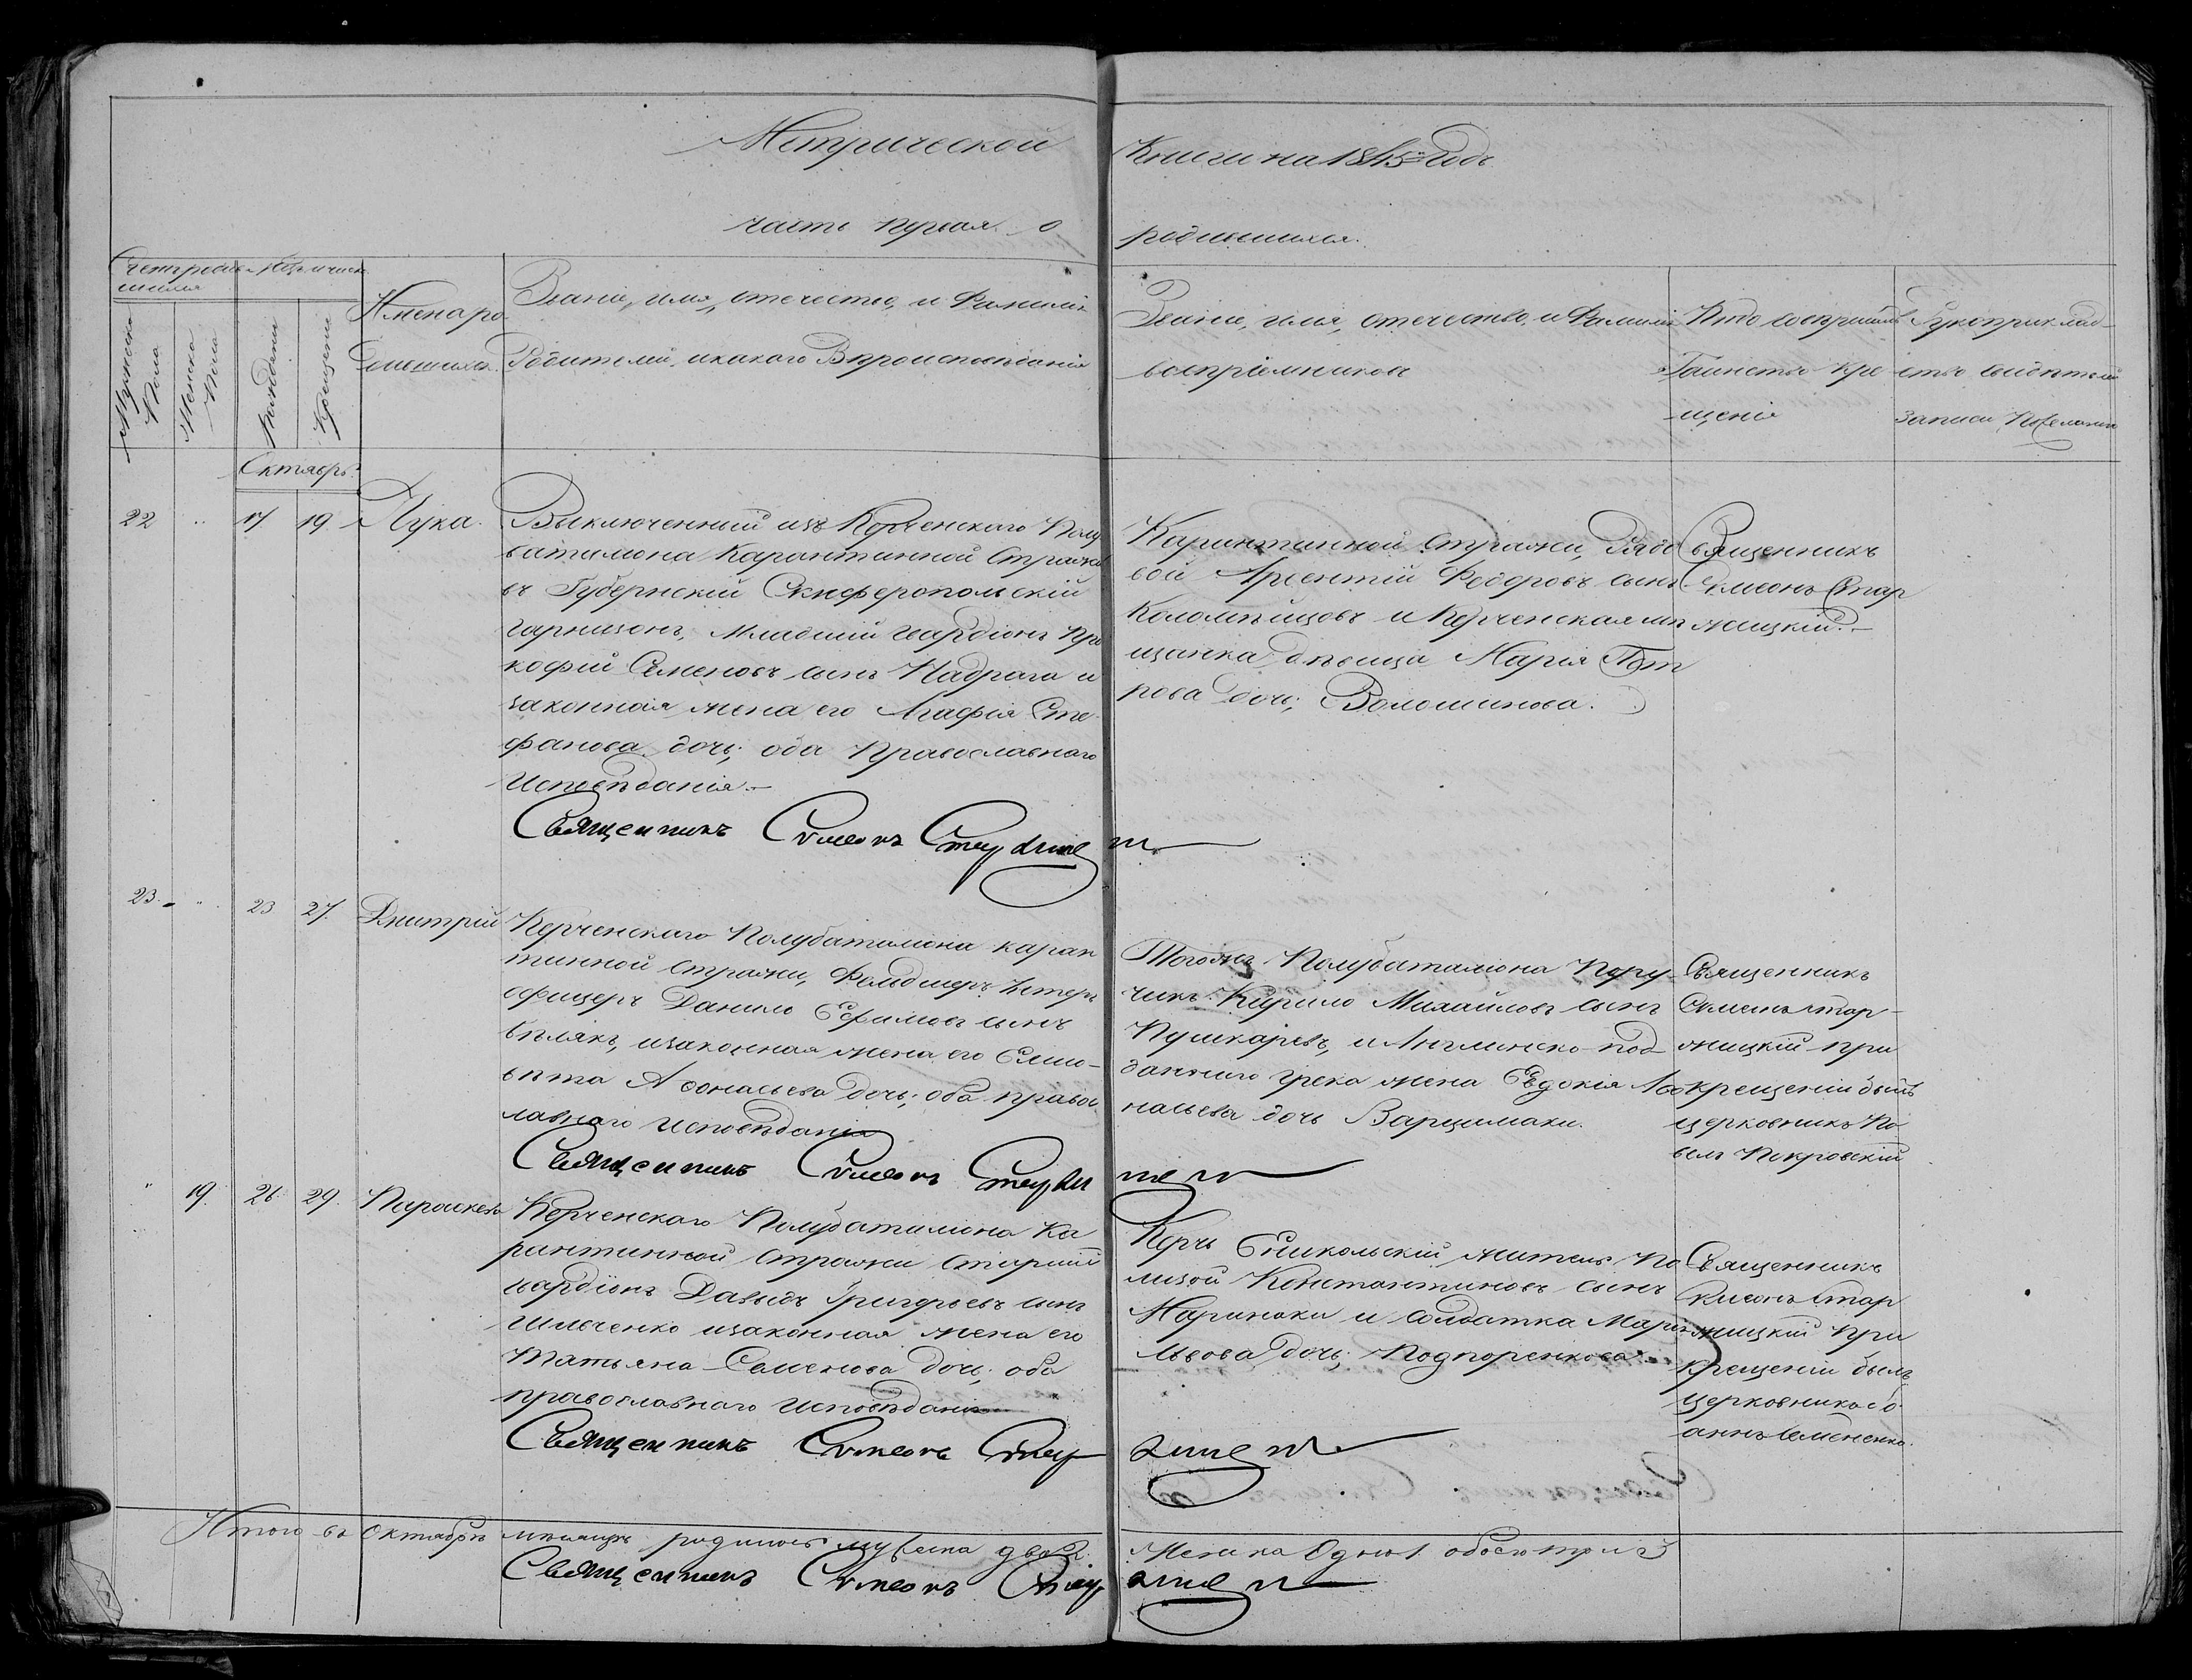 Метрической
Книги на 1845й Годъ
часть первая о
родившихся.
Счетъ родив Мѣс. и число
шихся
Мужеска Пола
Женска Пола
Рожденія
Крещенія
Имена ро
дившихся.
Званіе, имя, отечество, и Фамилія
Родителей, и какого Вѣроисповѣданія
Званіе, имя, отечество, и Фамилія
воспріемниковъ
Кто совершилъ
Таинство Кре
щенія
Рукоприклад-
ство свидѣтелей
записи по желанію
Октябрь.
22 " 17 19 Лука.
Выключенный изъ Керченского Полу
баталиона Карантинной Стражи
въ Губернскій Симферопольскій
гарнизонъ, Младшій гвардіонъ Про
кофій Семеновъ сынъ Надрага и
законная жена его Агафія Сте
фанова дочь; оба Православнаго
Исповѣданія.-
Карантинной Стражи, Рядо
вой Арсентій Федоровъ сынъ
Коломѣйцовъ и Керченская мѣ
щанка дѣвица Марія Пет
рова дочь; Волошинова.
Священникъ
Симеонъ Стар
жицкій.-
Священникъ Симеонъ
23. " 23 27. Дмитрій
Керченскаго Полубаталиона каран
тинной стражи, Фельдшеръ Унтеръ
офицеръ Данило Ефимовъ сынъ
Бѣлякъ, и законная жена его Елиса-
вета Афонасьева дочь; оба правос
лавнаго Исповѣданія
Тогожъ Полубаталиона Пору-
чикъ Кирило Михайловъ сынъ
Пушкаревъ, и Англинско-под-
даннаго грека жена Евдокія Афо
насьева дочь Варцимаки.
Священникъ
Симеонъ Стар-
жицкій при
крещеніи былъ
церковникъ Па
велъ Покровскій
Священникъ Симеонъ
" 19. 26. 29. Параскева
Керченскаго Полубаталиона Ка
рантинной Стражи Старшій
гвардіонъ Давыдъ Григорьевъ сынъ
Ильченко и законная жена его
Татьяна Семенова дочь; оба
православнаго Исповѣданія
Керчь Еникольскій житель По
лизой Константиновъ сынъ
Маринаки и солдатка Марія
Львова дочь; Подпоренкова
Священникъ
Симеонъ Стар
жицкій при
крещеніи былъ
церковникъ Іо
аннъ Семененко.
Священникъ Симеонъ
Итого въ Октябрѣ мѣсяцѣ родилось мужеска два 2. Женска Одна 1. обоего три 3
Священникъ Симеонъ